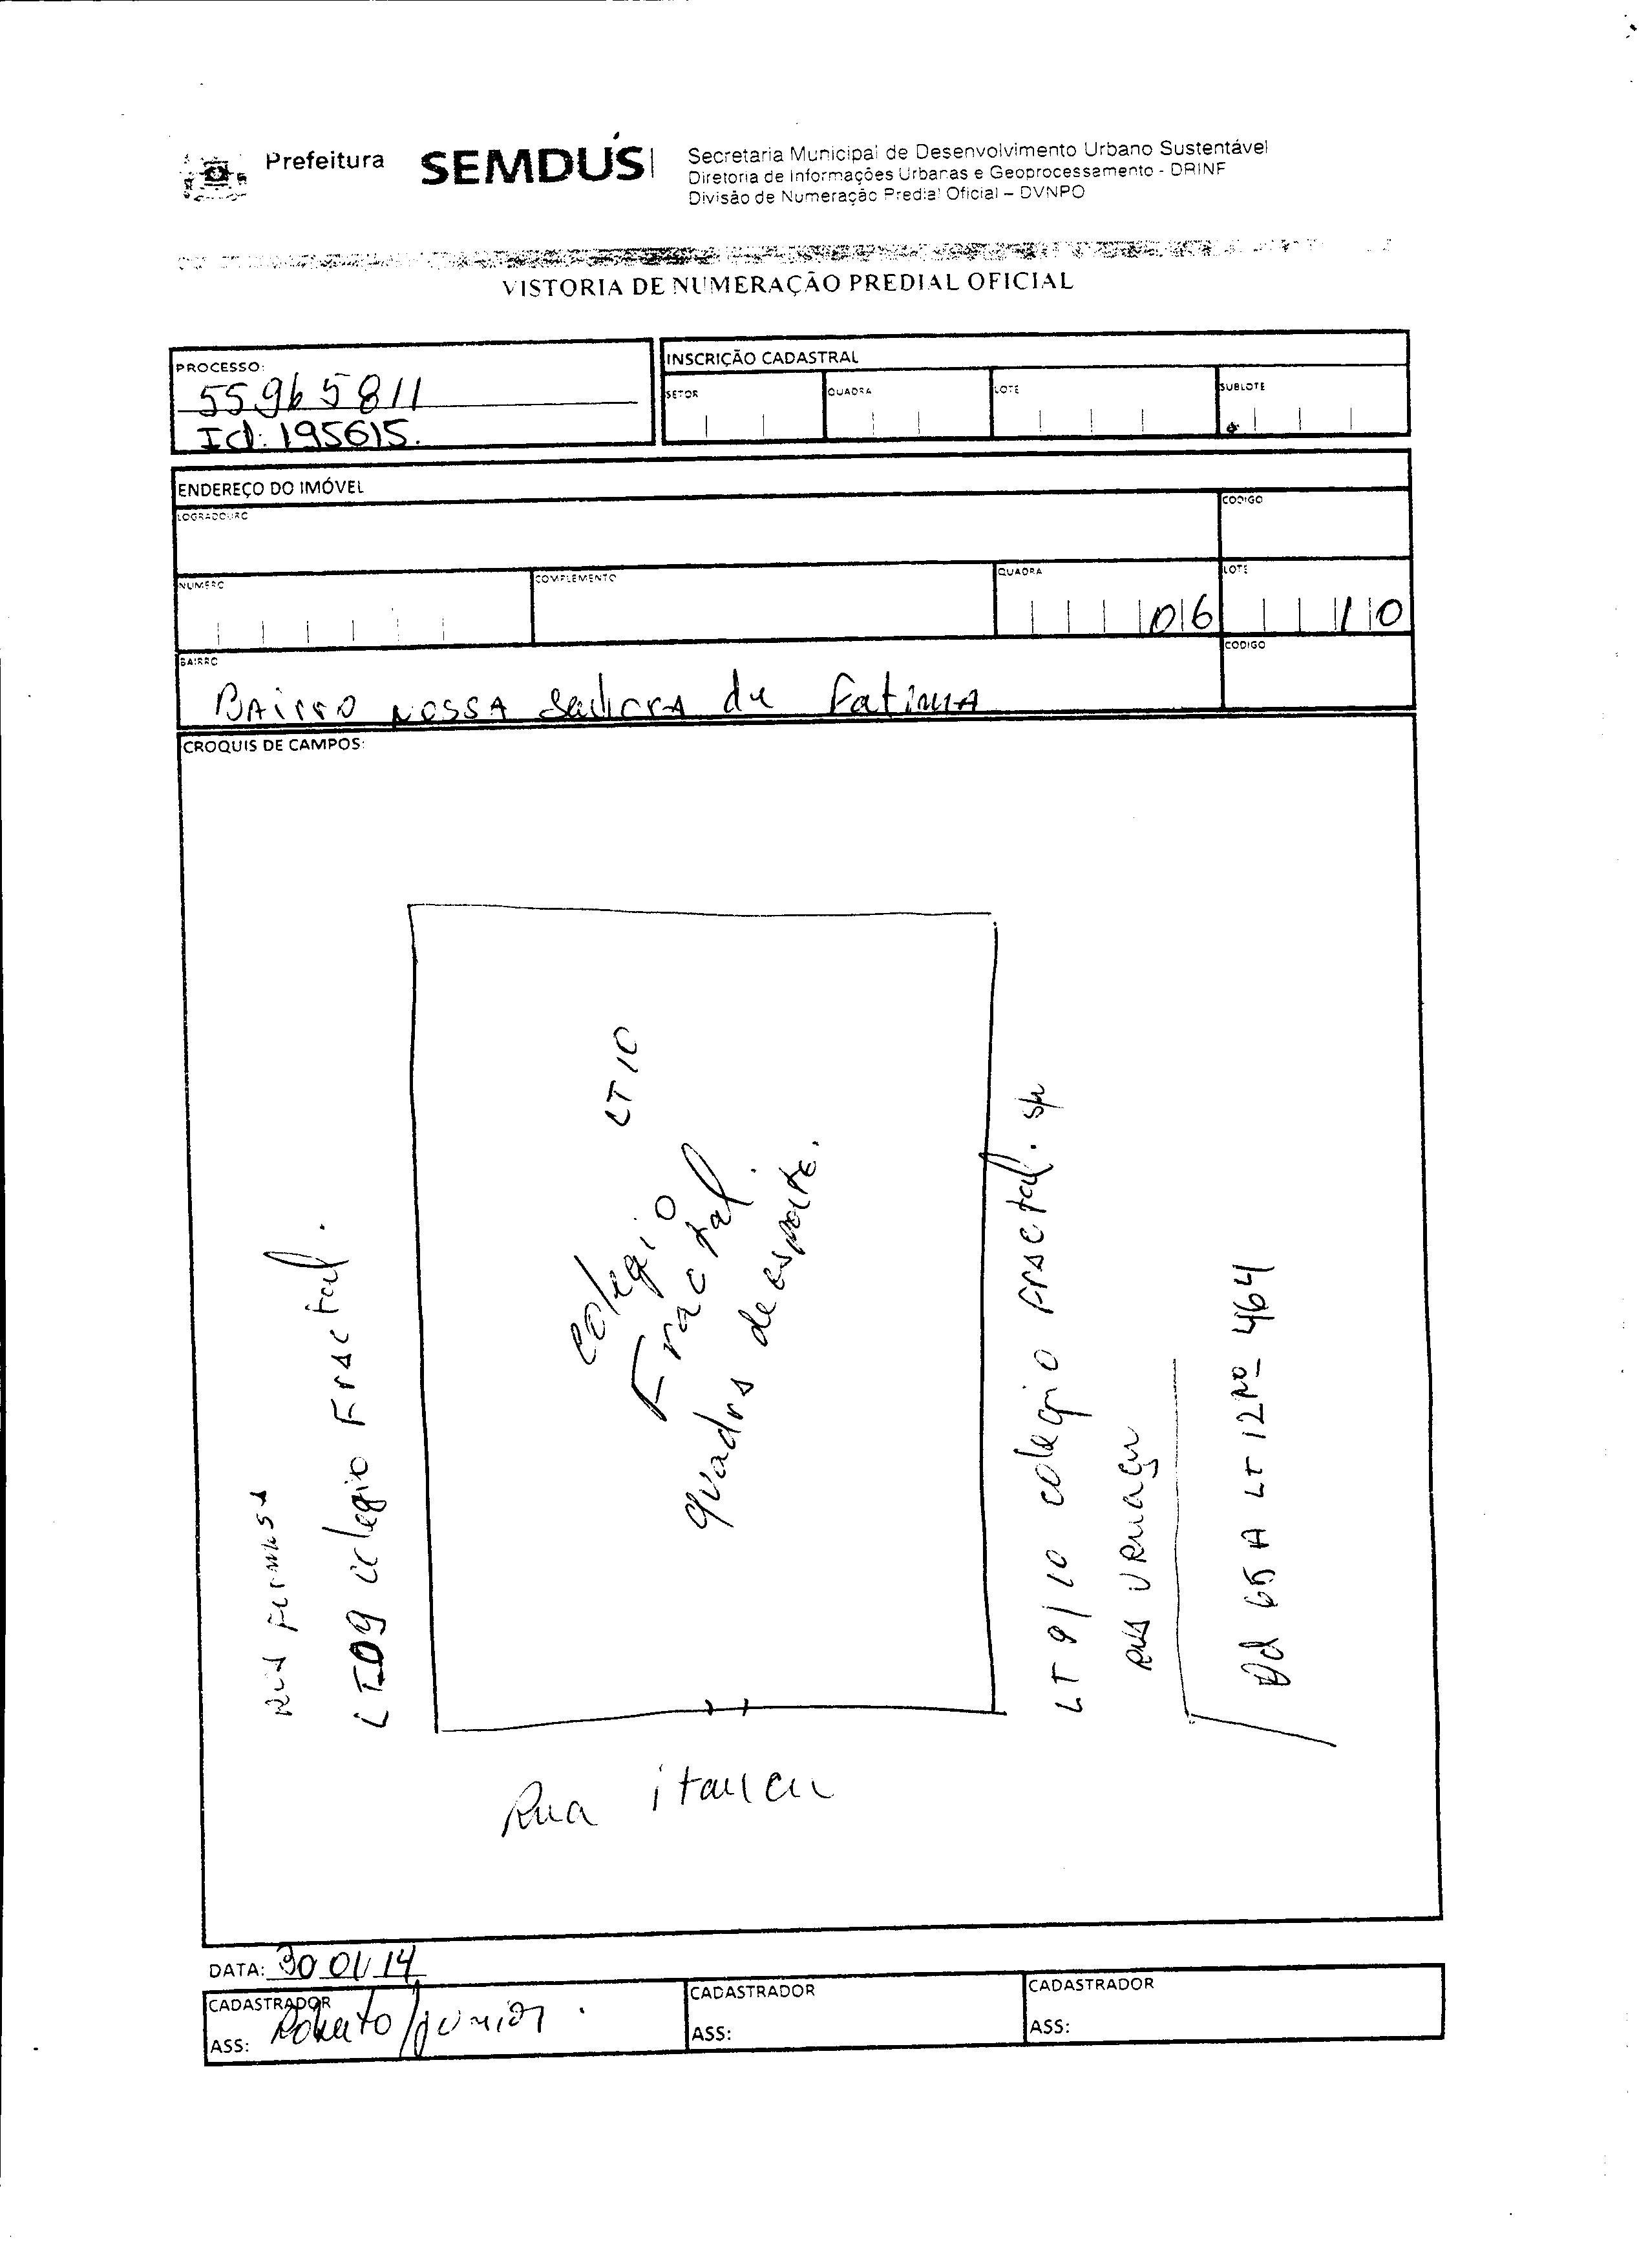 Prefeitura SEMDUS
Secretaria Municipal de Desenvolvimento Urbano Sustentável
Diretoria de Informações Urbanas e Geoprocessamento - DRINF
Divisão de Numeração Predial Oficial – DVNPO
VISTORIA DE NUMERAÇÃO PREDIAL OFICIAL
PROCESSO:
55965811
Id: 195615.
INSCRIÇÃO CADASTRAL
SETOR QUADRA LOTE SUBLOTE
ENDEREÇO DO IMÓVEL
LOGRADOURO CODIGO
NUMERO COMPLEMENTO QUADRA LOTE
06 10
BAIRRO CODIGO
BAirro NOSSA Sedhora de Fatima
CROQUIS DE CAMPOS:
LT 10
Colegio
Fractal.
quadra de esporte.
Rua Formosa
LT09 Colegio Fractal.
LT 9/10 colegio Fractal. s/n
Rua Uruaçu
Qd 65A LT 12 Nº 464
Rua itaucu
DATA: 30 01/14
CADASTRADOR
ASS: Roberto/junior.
CADASTRADOR
ASS:
CADASTRADOR
ASS: